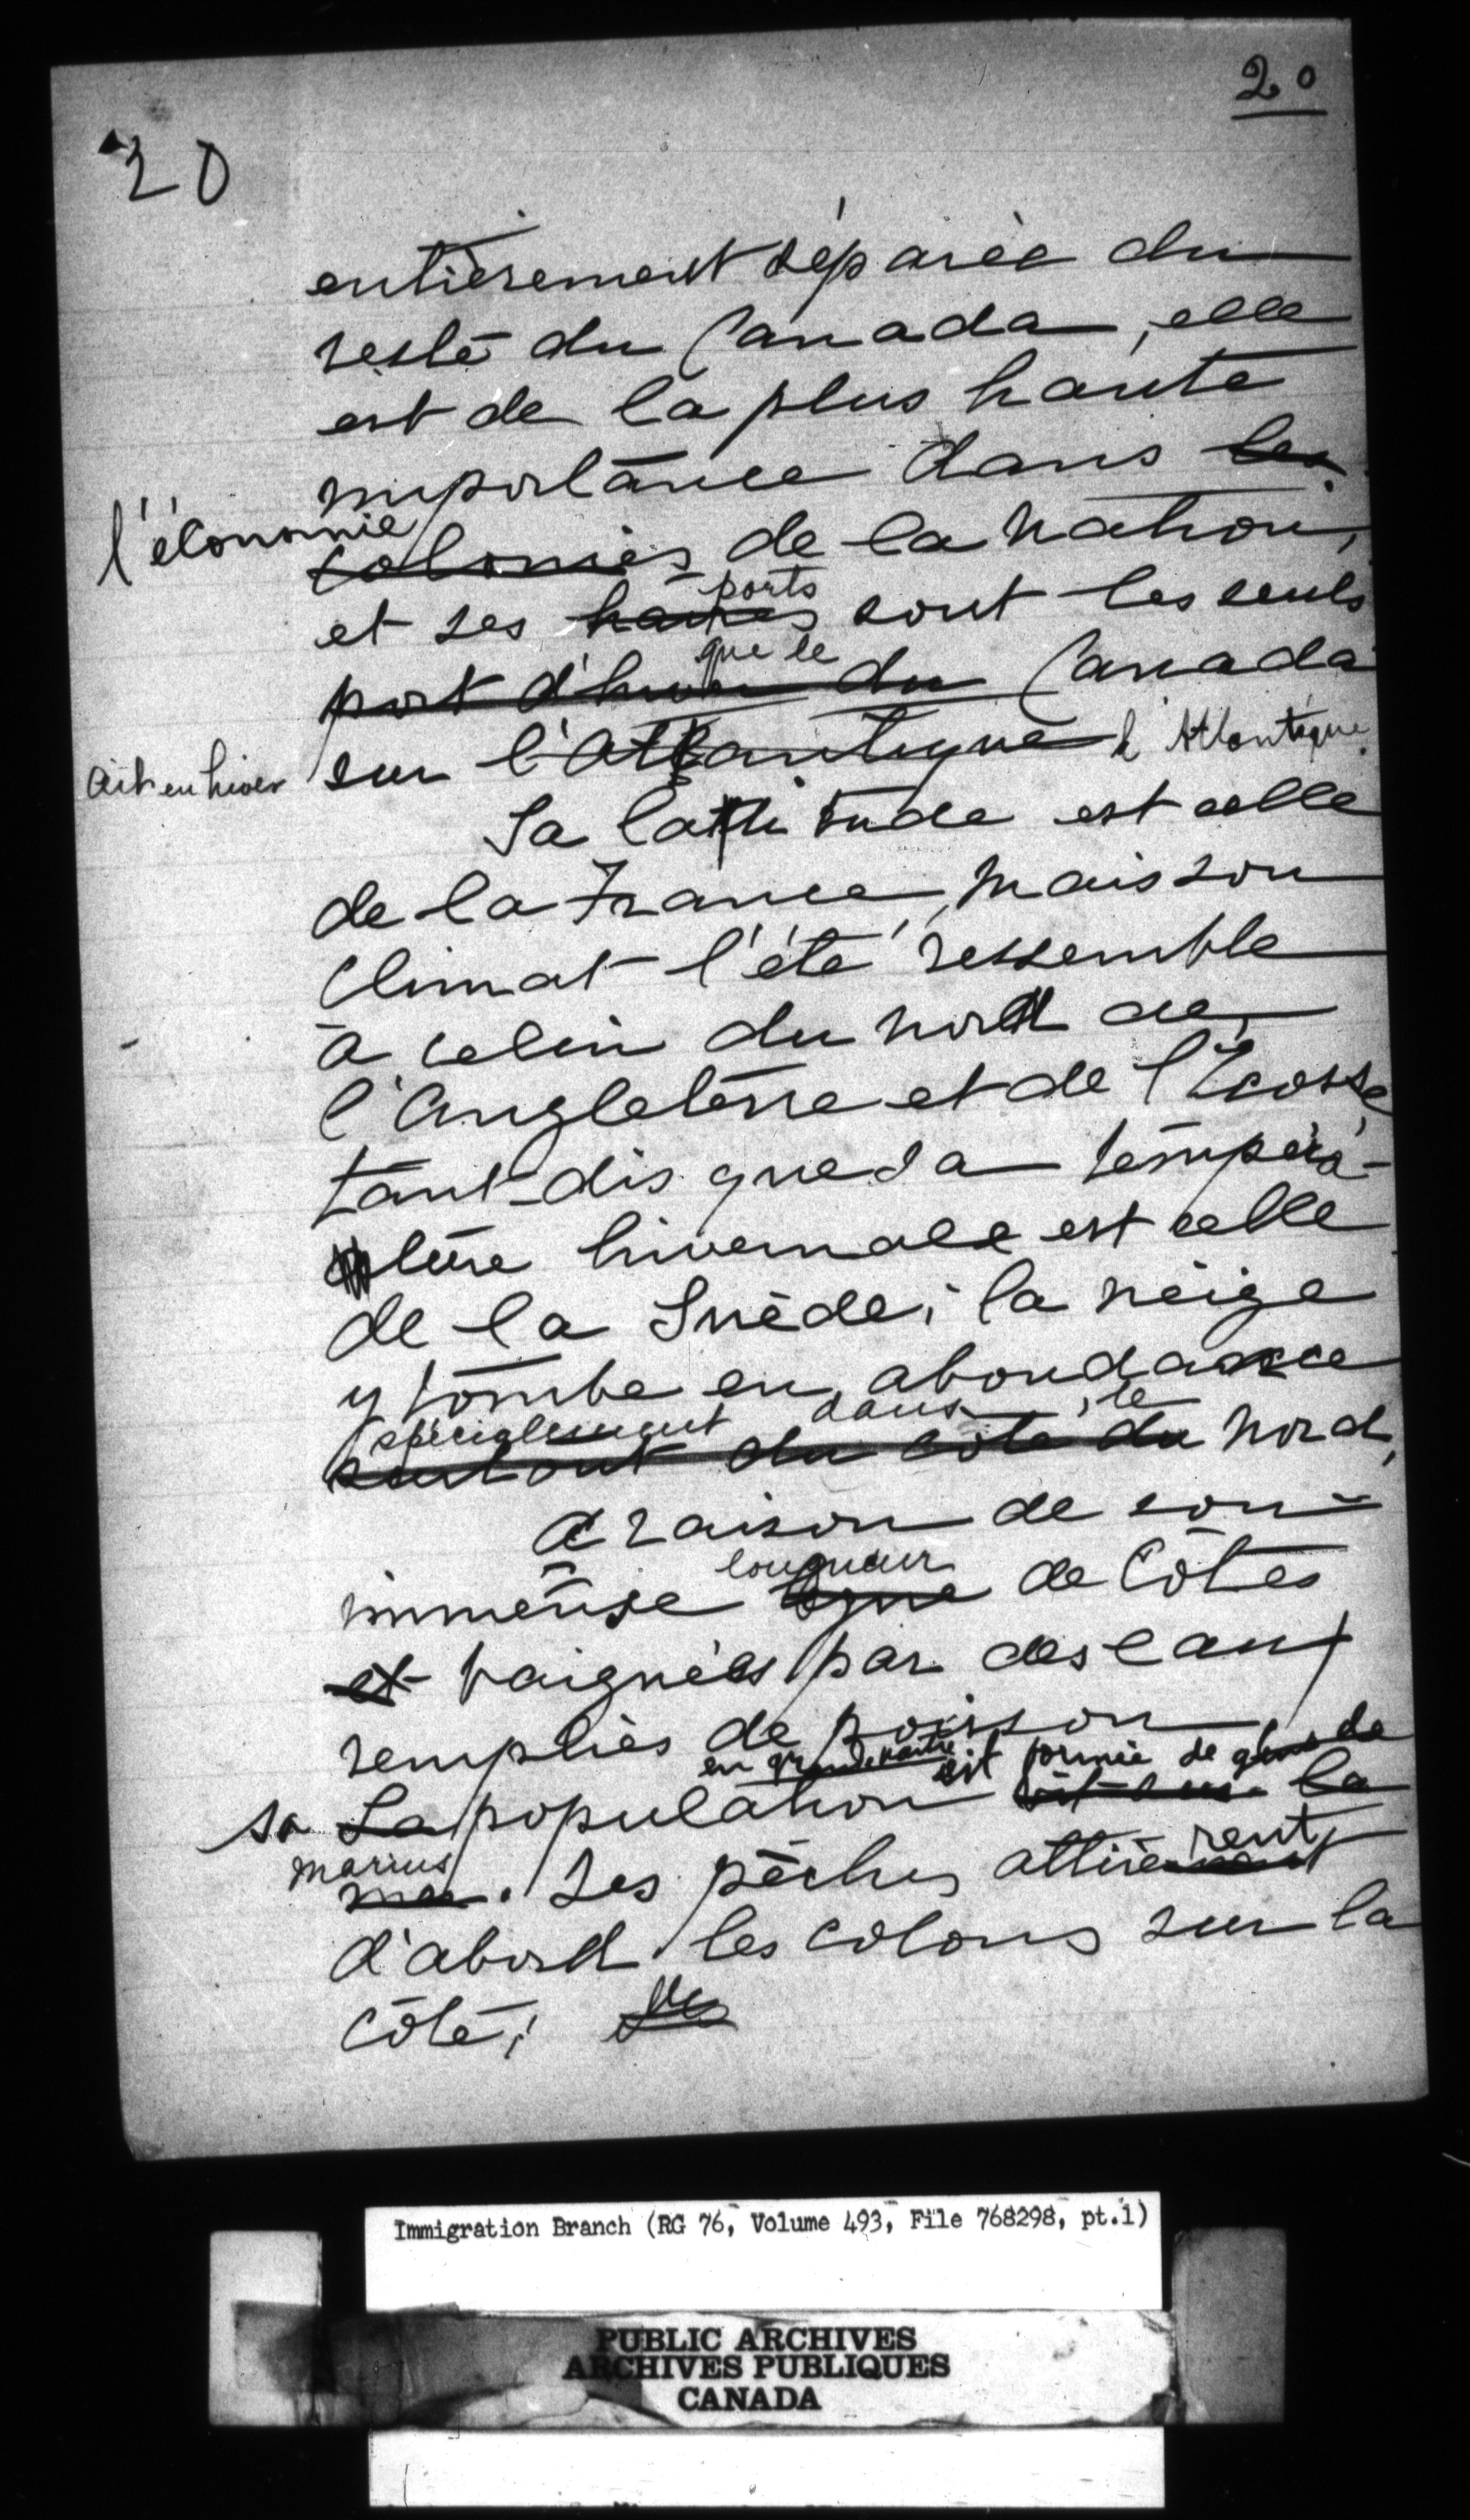 20
20
entièrement séparée du
reste du Canada, elle
est de la plus haute
importance dans les
l'économie
colonies de la nation,
ports
et ses havres sont les seuls
que le
port d'hiver du Canada
ait en hiver sur l'Atlantique l'Atlantique.
Sa latitude est celle
de la France, mais son
climat l'été ressemble
à celui du nord de
l'Angleterre et de l'Ecosse,
tant-dis que sa tempéra-
ture hivernale est celle
de la Suède; la neige
y tombe en abondance
spécialement dans le
surtout du côté du nord,
A raison de son
longueur
immense ligne de côtes
et baignées par des eaux
remplies de poisson,
en grande partie est formée de gens de
sa La population vit sur la
marins
mer. Les pêches attirèrent
d'abord les colons sur la
côte; Les
Immigration Branch (RG 76, Volume 493, File 768298, pt.1)
PUBLIC ARCHIVES
ARCHIVES PUBLIQUES
CANADA